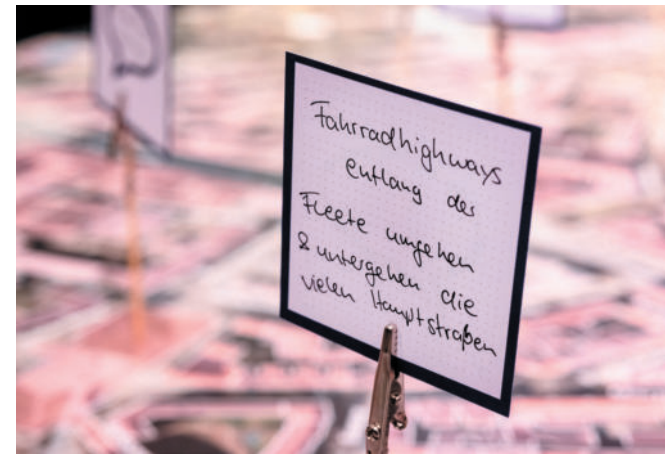 Fahrradhighways
entlang der
Fleete umgehen
& untergehen die
vielen Hauptstraßen